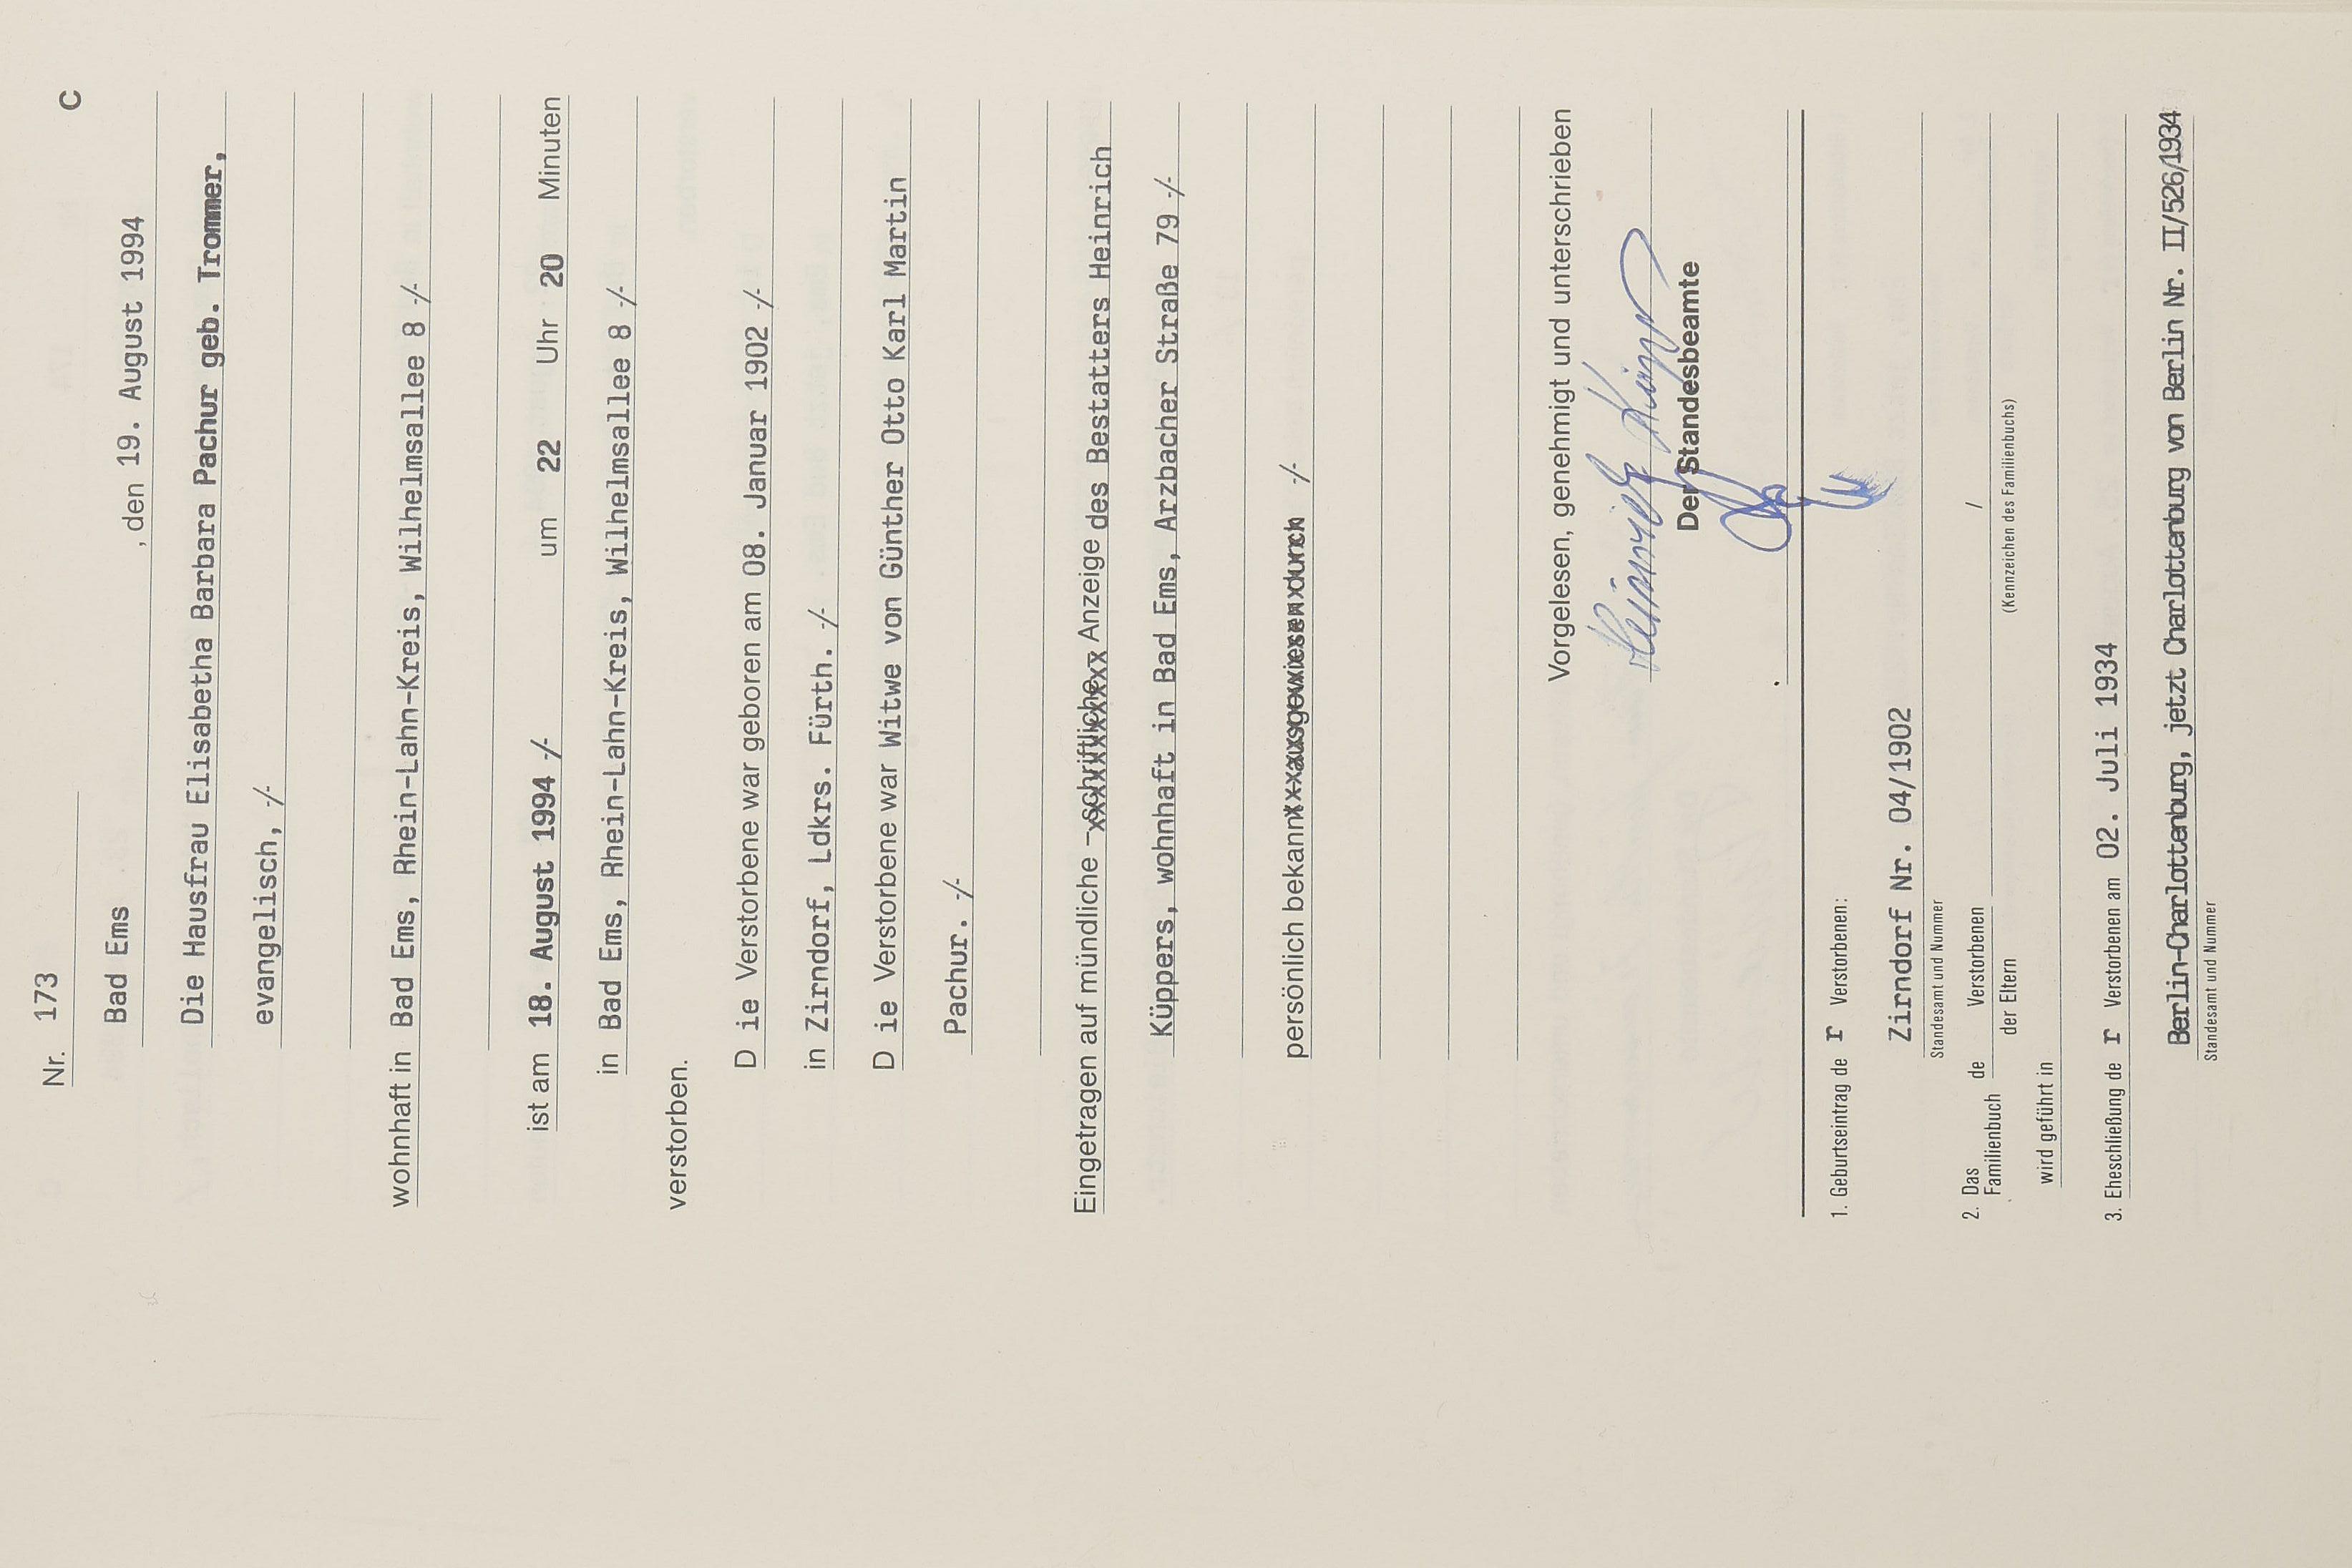 C
Nr. 173
Bad Ems , den 19. August 1994
Die Hausfrau Elisabetha Barbara Pachur geb. Trommer,
evangelisch, -/-
wohnhaft in Bad Ems, Rhein-Lahn-Kreis, Wilhelmsallee 8 -/-
ist am 18. August 1994 -/- um 22 Uhr 20 Minuten
in Bad Ems, Rhein-Lahn-Kreis, Wilhelmsallee 8 -/-
verstorben.
D ie Verstorbene war geboren am 08. Januar 1902 -/-
in Zirndorf, Ldkrs. Fürth. -/-
D ie Verstorbene war Witwe von Günther Otto Karl Martin
Pachur. -/-
Eingetragen auf mündliche – schriftliche – Anzeige des Bestatters Heinrich
Küppers, wohnhaft in Bad Ems, Arzbacher Straße 79 -/-
persönlich bekannt – ausgewiesen durch -/-
Vorgelesen, genehmigt und unterschrieben
Heinrich
Der Standesbeamte
1. Geburtseintrag de r Verstorbenen:
Zirndorf Nr. 04/1902
Standesamt und Nummer
2. Das Familienbuch de Verstorbenen /
der Eltern (Kennzeichen des Familienbuchs)
wird geführt in
3. Eheschließung de r Verstorbenen am 02. Juli 1934
Berlin-Charlottenburg, jetzt Charlottenburg von Berlin Nr. II/526/1934
Standesamt und Nummer